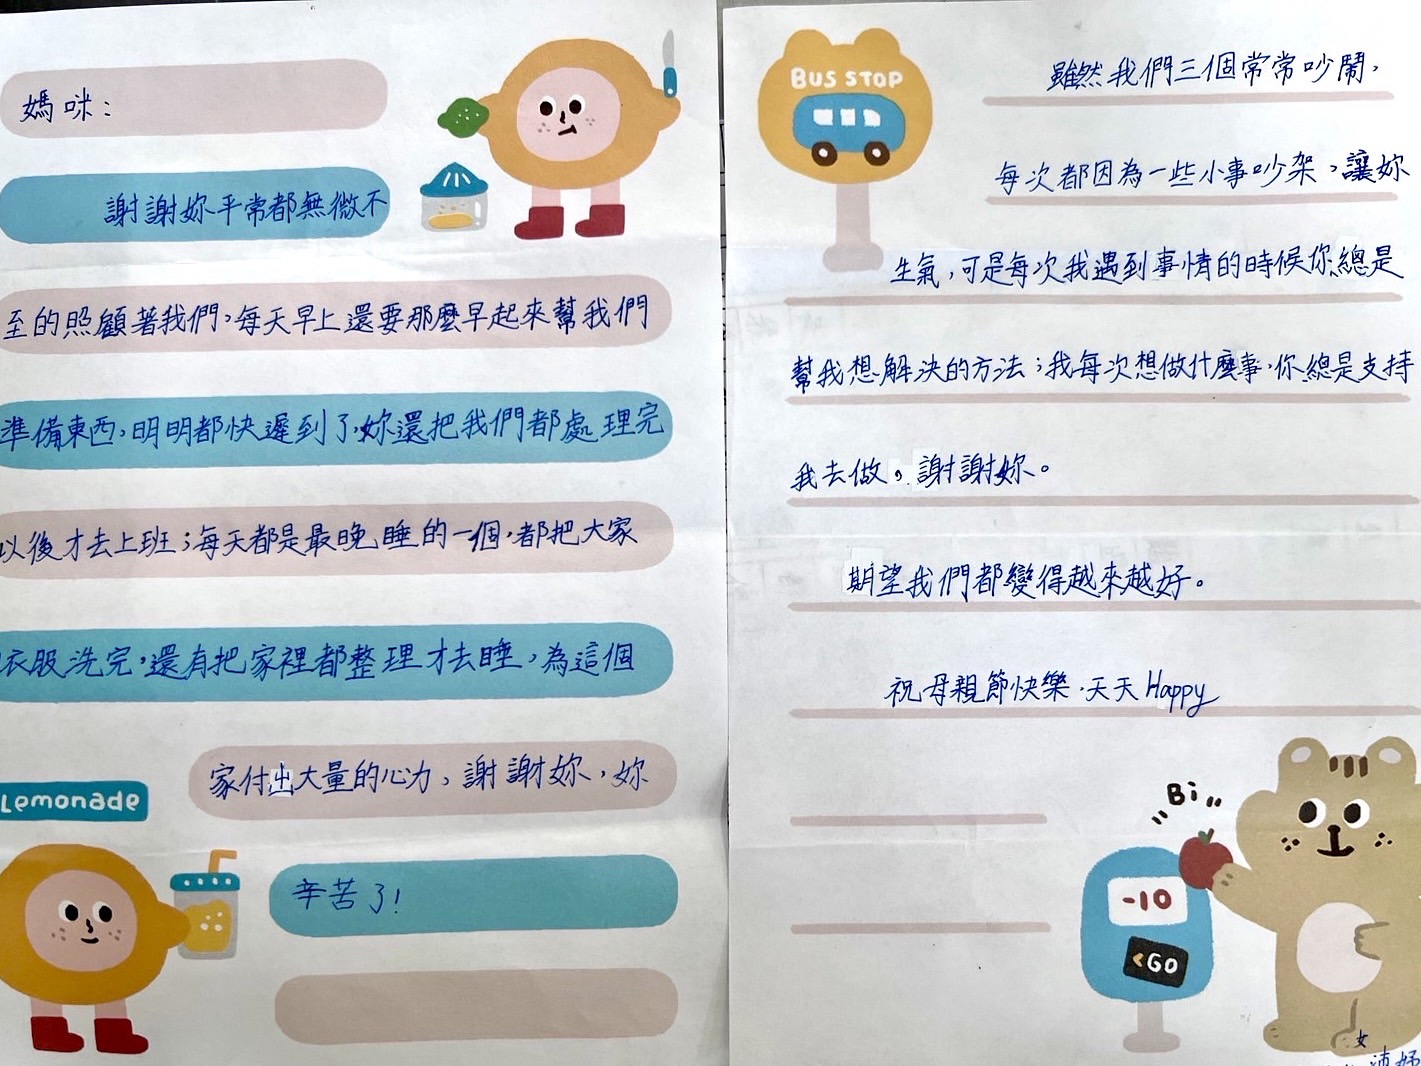 媽咪：
謝謝妳平常都無微不
至的照顧著我們，每天早上還要那麼早起來幫我們
準備東西，明明都快遲到了，妳還把我們都處理完
以後才去上班；每天都是最晚睡的一個，都把大家
衣服洗完，還有把家裡都整理才去睡，為這個
家付出大量的心力，謝謝妳，妳
辛苦了！
Lemonade
BUS STOP
雖然我們三個常常吵鬧，
每次都因為一些小事吵架，讓妳
生氣，可是每次我遇到事情的時候你總是
幫我想解決的方法；我每次想做什麼事，你總是支持
我去做，謝謝妳。
期望我們都變得越來越好。
祝母親節快樂，天天Happy
Bi
-10
<GO
女
沛妤